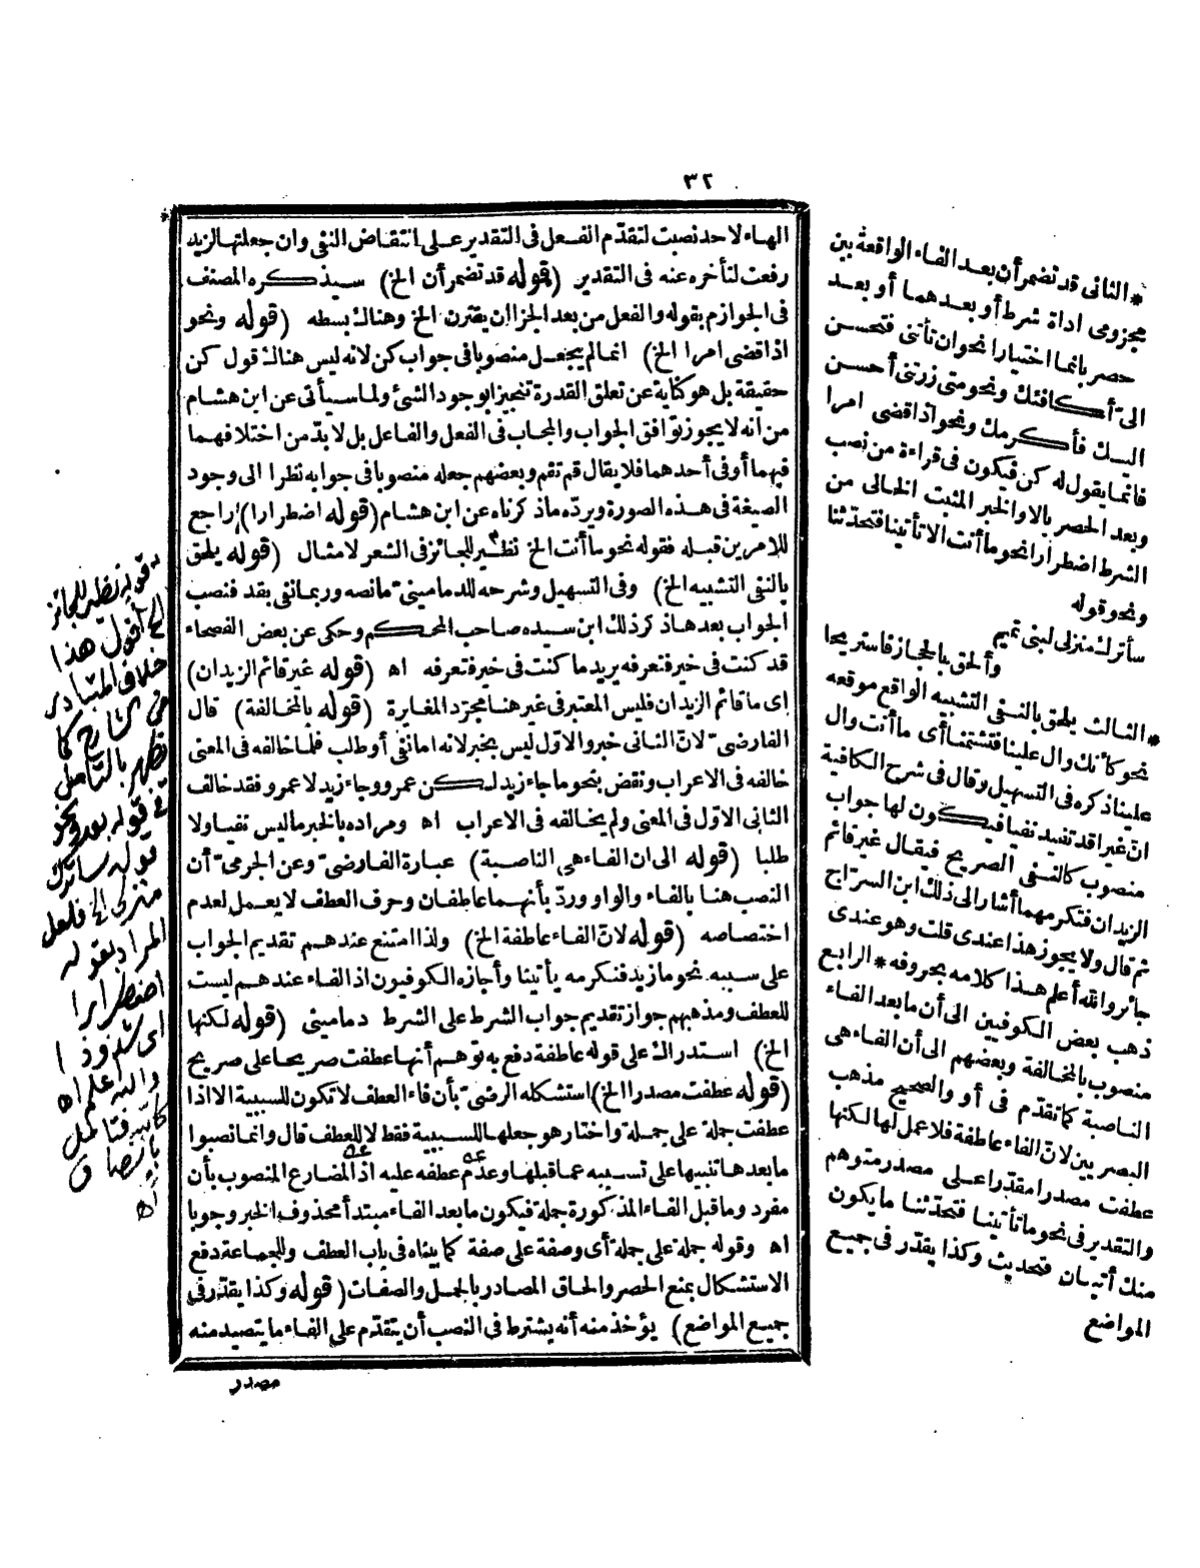 ٣٢
الهاء لاحد نصبت لتقدّم الفعل فى التقدير على انتقاض النفى وان جعلتها لزيد
رفعت لتأخره عنه فى التقدير (قوله قد تضمر أن الخ) سيذكره المصنف
فى الجوازم بقوله والفعل من بعد الجزا إن يقترن الخ وهناك بسطه (قوله ونحو
اذا قضى امرا الخ) انما لم يجعل منصوبا فى جواب كن لانه ليس هناك قول كن
حقيقة بل هو كناية عن تعلق القدرة تنجيزا بوجود الشئ ولما سيأتى عن ابن هشام
من انه لا يجوز توافق الجواب والمجاب فى الفعل والفاعل بل لا بدّ من اختلافهما
فيهما أو فى أحدهما فلا يقال قم تقم وبعضهم جعله منصوبا فى جوابه نظرا الى وجود
الصيغة فى هذه الصورة ويردّه ماذكرناه عن ابن هشام (قوله اضطرارا) راجع
للامرين قبله فقوله نحو ما أنت الخ نظير للجائز فى الشعر لا مثال (قوله يلحق
بالنفى التشبيه الخ) وفى التسهيل وشرحه للدمامينى مانصه وربما نفى بقد فنصب
الجواب بعدها ذكر ذلك ابن سيده صاحب المحكم وحكى عن بعض الفصحاء
قد كنت فى خير فتعرفه يريد ما كنت فى خير فتعرفه اه (قوله غير قائم الزيدان)
اى ما قائم الزيدان فليس المعتبر فى غير هنا مجرّد المغايرة (قوله بالمخالفة) قال
الفارضى لانّ الثانى خبر والاوّل ليس بخبر لانه اما نفى أو طلب فلما خالفه فى المعنى
خالفه فى الاعراب ونقض بنحو ما جاء زيد لكن عمرو وجاء زيد لا عمرو فقد خالف
الثانى الاوّل فى المعنى ولم يخالفه فى الاعراب اه ومراده بالخبر ما ليس نفيا ولا
طلبا (قوله الى ان الفاء هى الناصبة) عبارة الفارضى وعن الجرمى أن
النصب هنا بالفاء والواو وردّ بأنهما عاطفان وحرف العطف لا يعمل لعدم
اختصاصه (قوله لانّ الفاء عاطفة الخ) ولذا امتنع عندهم تقديم الجواب
على سببه نحو ما زيد فنكرمه يأتينا وأجازه الكوفيون اذ الفاء عندهم ليست
للعطف ومذهبهم جواز تقديم جواب الشرط على الشرط دمامينى (قوله لكنها
الخ) استدراك على قوله عاطفة دفع به توهم أنها عطفت صريحا على صريح
(قوله عطفت مصدرا الخ) استشكله الرضى بأن فاء العطف لا تكون للسببية الا اذا
عطفت جملة على جملة واختار هو جعلها للسببية فقط لا للعطف قال وانما نصبوا
ما بعدها تنبيها على تسببه عما قبلها وعدم عطفه عليه اذ المضارع المنصوب بأن
مفرد وما قبل الفاء المذكورة جملة فيكون ما بعد الفاء مبتدأ محذوف الخبر وجوبا
اه وقوله جملة على جملة أى وصفة على صفة كما بيناه فى باب العطف وللجماعة دفع
الاستشكال بمنع الحصر والحاق المصادر بالجمل والصفات (قوله وكذا يقدّر فى
جميع المواضع) يؤخذ منه أنه يشترط فى النصب أن يتقدّم على الفاء ما يتصيد منه
مصدر
* الثانى قد تضمر أن بعد الفاء الواقعة بين
مجزومى اداة شرط أو بعدهما أو بعد
حصر بانما اختيارا نحو ان تأتنى فتحسن
الىّ أكافئك ونحو متى زرتنى أحسن
اليك فأكرمك ونحو اذا قضى امرا
فانما يقول له كن فيكون فى قراءة من نصب
وبعد الحصر بالا والخبر المثبت الخالى من
الشرط اضطرارا نحو ما أنت الا تأتينا فتحدّثنا
ونحو قوله
سأترك منزلى لبنى تميم
وألحق بالحجاز فاستريحا
* الثالث يلحق بالنفى التشبيه الواقع موقعه
نحو كأنك وال علينا فتشتمنا أى ما أنت وال
علينا ذكره فى التسهيل وقال فى شرح الكافية
انّ غيرا قد تفيد نفيا فيكون لها جواب
منصوب كالنفى الصريح فيقال غير قائم
الزيدان فنكرمهما أشار الى ذلك ابن السرّاج
ثم قال ولا يجوز هذا عندى قلت وهو عندى
جائز والله أعلم هذا كلامه بحروفه * الرابع
ذهب بعض الكوفيين الى أن ما بعد الفاء
منصوب بالمخالفة وبعضهم الى أن الفاء هى
الناصبة كما تقدّم فى أو والصحيح مذهب
البصريين لانّ الفاء عاطفة فلا عمل لها لكنها
عطفت مصدرا مقدّرا على مصدر متوهم
والتقدير فى نحو ما تأتينا فتحدّثنا ما يكون
منك أتيان فتحديث وكذا يقدّر فى جميع
المواضع
قوله نظير للجائز
الخ أقول هذا
خلاف المتبادر
من الشارح كما
يظهر بالتأمل
فى قوله بعد ونحو
قوله سأترك
منزلى الخ فلعل
المراد بقوله
اضطرارا
اى شذوذا
والله اعلم اه
اه